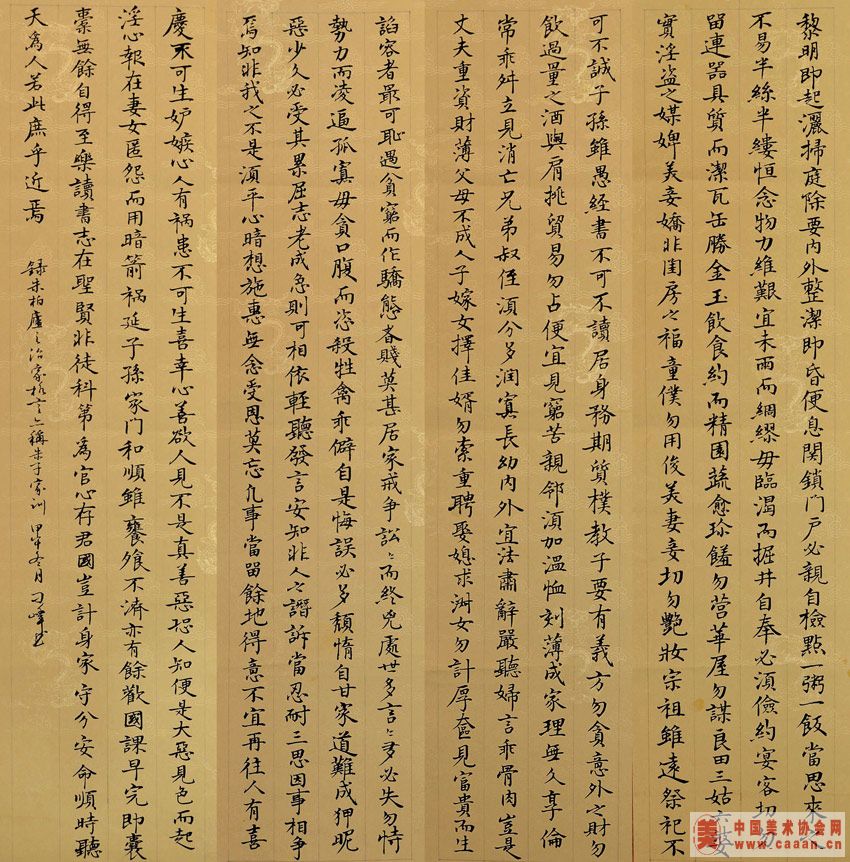 黎明即起灑掃庭除要內外整潔即昏便息関鎖門戶必親自檢點一粥一飯當思來
不易半絲半縷恒念物力維艱宜未雨而綢繆毋臨渴而掘井自奉必須儉約宴客切勿
畱連器具質而潔瓦缶勝金玉飲食約而精園蔬愈珍饈勿营華屋勿謀良田三姑六婆
實淫盜之媒婢美妾嬌非閨房之福童僕勿用俊美妻妾切勿艷妝宗祖雖遠祭祀不
可不誠子孫雖愚經書不可不讀居身務期質樸教子要有義方勿貪意外之財勿
飲過量之酒與肩挑貿易勿占便宜見窮苦親鄰須加溫恤刻薄成家理無久享倫
常乖舛立見消亡兄弟叔侄須分多润寡長幼內外宜法肅辭嚴聽婦言乖骨肉豈是
丈夫重資財薄父母不成人子嫁女擇佳婿勿索重聘娶媳求淑女勿計厚奩見富貴而生
諂容者最可恥遇貧窮而作驕態者賤莫甚居家戒争訟〻而終兇處世多言〻多必失勿恃
勢力而凌逼孤寡毋貪口腹而恣殺牲禽乖僻自是悔誤必多頹惰自甘家道難成狎昵
惡少久必受其累屈志老成急則可相依輕聽發言安知非人之譖訴當忍耐三思因事相爭
焉知非我之不是須平心暗想施惠無念受恩莫忘凡事當畱餘地得意不宜再往人有喜
慶不可生妒嫉心人有禍患不可生喜幸心善欲人見不是真善惡恐人知便是大惡見色而起
淫心報在妻女匿怨而用暗箭禍延子孫家門和順雖饔飧不濟亦有餘歡國課早完即囊
橐無餘自得至樂讀書志在聖賢非徒科第為官心存君國豈計身家守分安命順時聽
天為人若此庶乎近焉
錄朱柏廬之治家格言亦稱朱子家訓 甲申冬月 刁峰書
美 中国美术协会网
www.caaan.cn